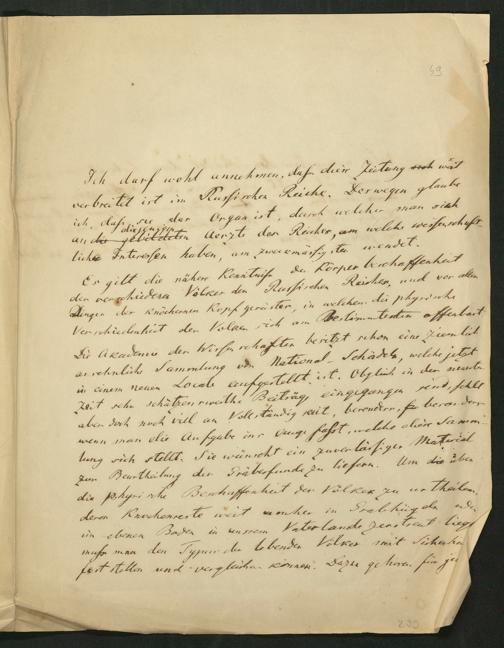 59
Ich darf wohl annehmen, daß diese Zeitung weit
verbreitet ist im Russischen Reiche. Deswegen glaube
ich, daß sie das Organ ist, durch welches man sich
diejenigen
an die gebildeten Aerzte des Reiches, um welche wissenschaft-
liche Interessen haben, am zweckmäßigsten wendet.
Es gilt die nähere Kenntniß der Körperbeschaffenheit
der verschiedenen Völker des Russischen Reiches, und vor allen
Dingen der knöchernen Kopfgerüste, in welchen die physische
Verschiedenheit der Völker sich am Bestimmtesten offenbart.
Die Akademie der Wissenschaften besitzt schon eine ziemlich
ansehnliche Sammlung von National-Schädeln, welche jetzt
in einem neuen Locale aufgestellt ist. Obgleich in der neuesten
Zeit sehr schätzenswerthe Beiträge eingegangen sind, fehlt
aber doch noch viel an Vollständigkeit, besonders
wenn man die Aufgabe ins Auge faßt, welche diese Samm-
lung sich stellt. Sie wünscht ein zuverlässiges Material
zur Beurtheilung der Gräberfunde zu liefern. Um über
die physische Beschaffenheit der Völker zu urtheilen,
deren Knochenreste weit umher in Grabhügeln oder
im ebenen Boden in unserem Vaterlande zerstreut liegen
muß man den Typus der lebenden Völker mit Sicherheit
feststellen und vergleichen können. Dazu gehören für je